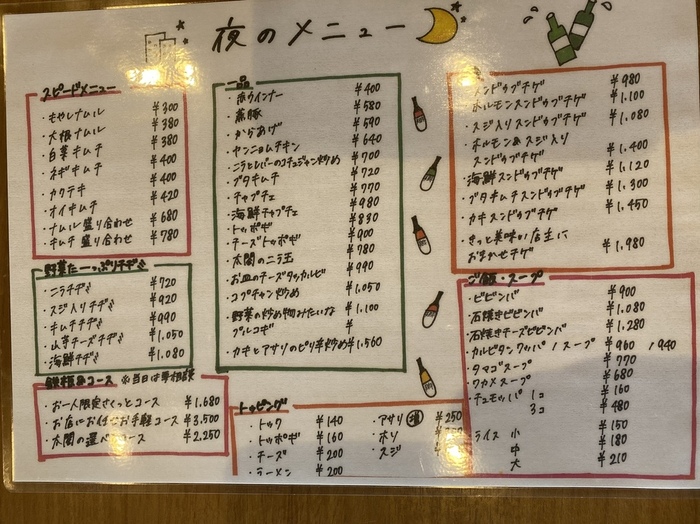 夜のメニュー
スピードメニュー
・もやしナムル ¥300
・大根ナムル ¥380
・白菜キムチ ¥380
・ネギキムチ ¥400
・カクテキ ¥400
・オイキムチ ¥420
・ナムル盛り合わせ ¥680
・キムチ盛り合わせ ¥780
野菜たーっぷりチヂミ
・ニラチヂミ ¥720
・スジ入りチヂミ ¥920
・キムチチヂミ ¥990
・山芋チーズチヂミ ¥1,050
・海鮮チヂミ ¥1,080
コース ※当日は要相談
・お一人限定さくっとコース ¥1,680
・お店にお任せお手軽コース ¥3,500
・太閤の選べ コース ¥2,250
一品
・赤ウインナー ¥400
・蒸豚 ¥580
・からあげ ¥590
・ヤンニョムチキン ¥640
・ニラとレバーのコチュジャン炒め ¥700
・ブタキムチ ¥720
・チャプチェ ¥770
・海鮮チャプチェ ¥980
・トッポギ ¥830
・チーズトッポギ ¥900
・太閤のニラ玉 ¥780
・お皿のチーズタッカルビ ¥990
・コプチャン炒め ¥1,050
・野菜の炒め物みたいな ¥1,100
プルコギ ¥
・カキとアサリのピリ辛炒め ¥1,560
トッピング
・トック ¥140
・トッポギ ¥160
・チーズ ¥200
・ラーメン ¥200
・アサリ ¥250
・ホソ
・スジ ¥
スンドゥブチゲ ¥980
ホルモンスンドゥブチゲ ¥1,100
・スジ入りスンドゥブチゲ ¥1,080
・ホルモン&スジ入り
スンドゥブチゲ ¥1,400
・海鮮スンドゥブチゲ ¥1,120
・ブタキムチスンドゥブチゲ ¥1,300
・カキスンドゥブチゲ ¥1,450
・きっと美味い店主に
おまかせチゲ ¥1,980
ご飯・スープ
・ビビンバ ¥900
・石焼きビビンバ ¥1,080
・石焼きチーズビビンバ ¥1,280
・カルビタンクッパ / スープ ¥960 / 940
・タマゴスープ ¥770
・ワカメスープ ¥680
・チュモッパ 1コ ¥160
3コ ¥480
ライス 小 ¥150
中 ¥180
大 ¥210